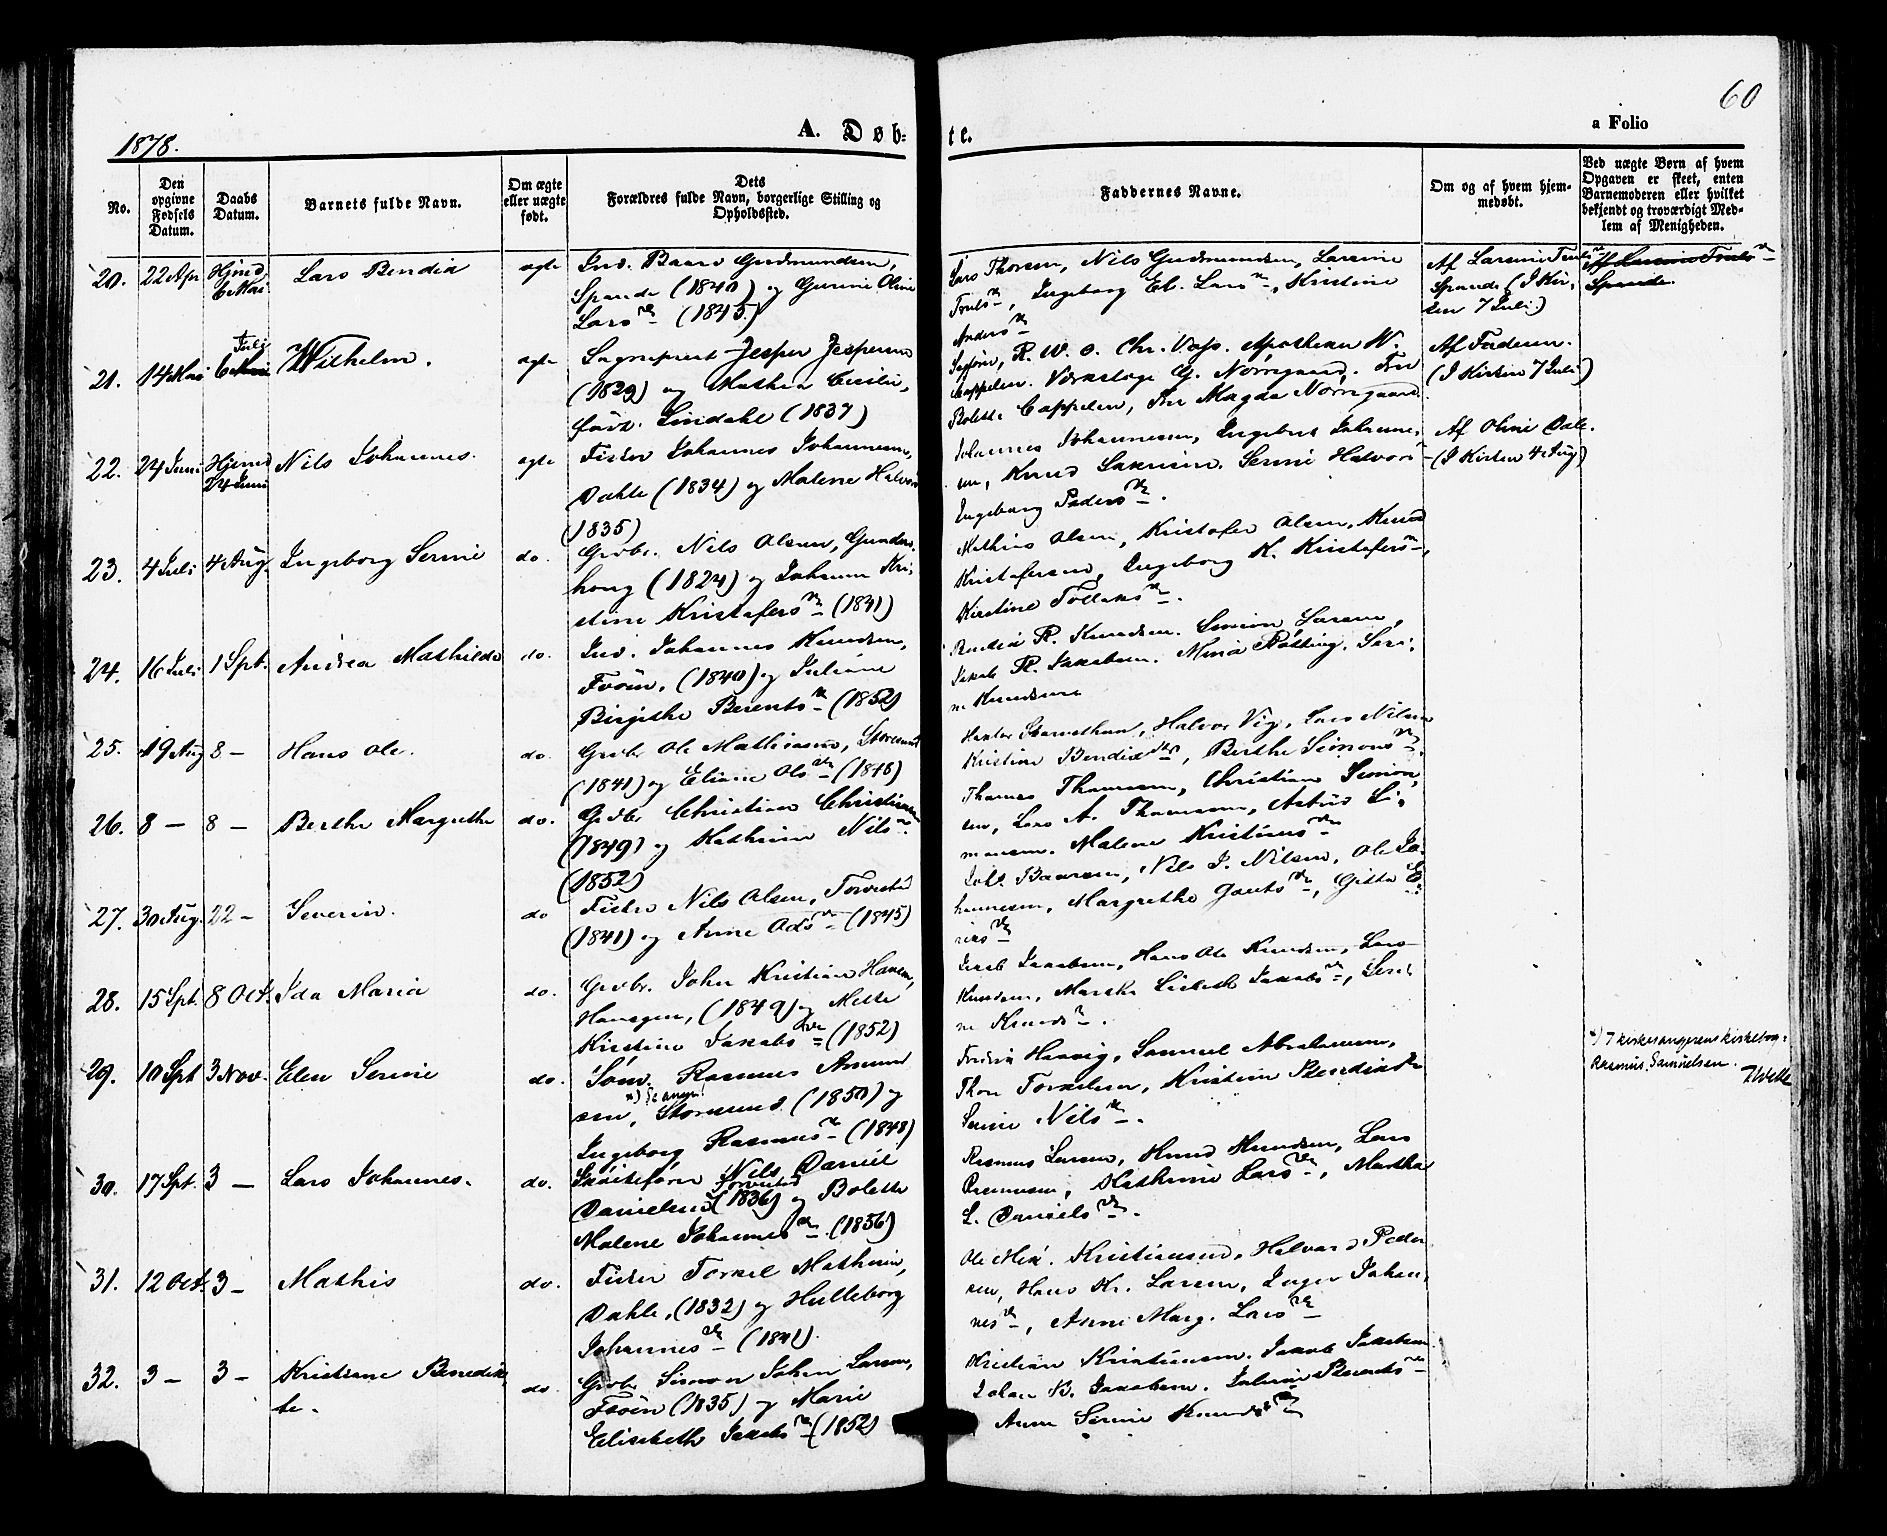 60
1878.
A. Døb-
te.
a Folio
No.
Den opgivne Fødsels Datum.
Daabs Datum.
Barnets fulde Navn.
Om ægte eller uægte født.
Dets Forældres fulde Navn, borgerlige Stilling og Opholdssted.
Faddernes Navne.
Om og af hvem hjemmedøbt.
Ved uægte Børn af hvem Opgaven er skeet, enten Barnemoderen eller hvilket bekjendt og troværdigt Medlem af Menigheden.
20. 22 Apr Hjemd. 6 Mai Lars Bendix ægte Ind. Baard Gudmundsen,
Spande (1840) og Gurine Oline
Lars (1845)
Lars Thorsen, Nils Gudmundsen, Larsine
Truls, Ingeborg El. Lars, Kristine
Anders
Af Larsine Truls
Spande (I Kir-
ken 7 Juli)
21. 14 Mai 6 Juli Wilhelm. ægte Sagfører Jesper Jespersen
(1829) og Mathea Cecilie,
født Lindahl (1837)
Cappelen. G. Nørregaard. Fru
Bolette Cappelen, Fru Magda Nørregaard
Af Faderen.
(I Kirken 7 Juli)
22. 24 Juni Hjemd 24 Juni Nils Johannes. ægte Fisker Johannes Johannesen,
Dahle (1834) og Malene Halvors
(1835)
Johannes Johannesen, Ingebret Johannes-
sen, Knud Serine Halvors
Ingeborg Peders.
Af Oline Dale.
(I Kirken 4 Aug)
23. 4 Juli 4 Aug. Ingeborg Serine do. Grdbr. Nils Olsen, Gunders-
houg (1824) og Johanne Kri-
stine Kristofers (1841)
Mathias Olsen, Kristofer Olsen, Knud
Kristofersen, Ingeborg K. Kristofers,
Kirstine Tollaks.
24. 16 Juli 1 Spt. Andrea Mathilde do. Ind. Johannes Knudsen,
Fæøen, (1840) og Juliane
Birgithe Berents (1852)
Bendix R. Knudsen. Simon Larsen,
Jakob R. Jakobsen. Mina Røtting. Seri-
ne Knudsen
25. 19 Aug 8 — Hans Ole. do. Grdbr Ole Mathiasen, Storesund
(1841) og Eliane Ols (1848)
Halvor Vig, Lars Nilsen
Kristine Bendix, Berthe Simons
26. 8 — 8 — Berthe Margrethe do. Grdbr Christian Christiansen
(1849) og Kathrine Nils
(1852)
Thomas Thomsen, Christian Simon-
sen, Lars A. Thomsen, Si-
monsen. Malene Kristians
27. 30 Aug. 22 — Severin. do Fisker Nils Olsen, Torvestad
(1841) og Anne Ads (1845)
Baarsen, Nils J. Nilsen, Ole Jo-
hannesen, Margrethe Gauts, Gitta E-
riks
28. 15 Spt. 8 Oct. Ida Maria do. Grdbr. John Kristian Hansen,
Haugen, (1849) og Mette
Kirstine Jakobs (1852)
Jakob Jakobsen, Hans Ole Knudsen, Lars
Knudsen, Marthe Lisbeth Jakobs, Seri-
ne Knuds.
29. 10 Spt 3 Nov. Elen Serine do. Søm. Rasmus Amund
sen, Storesund (1850) og
Ingeborg Rasmus (1848)
Fredrik Hervig, Samuel Abrahamsen,
Thore Torkelsen, Kristine Bendix
Serine Nils.
x) I kirkesangerens kirkebog:
Rasmus Samuelsen.
30. 17 Spt. 3 — Lars Johannes. do. Nils Daniel
Danielsen Torvestad (1836) og Bolette
Malene Johannes (1856)
Rasmus Larsen, Knud Knudsen, Lars
Rasmussen, Kathrine Lars, Martha
L. Daniels.
31. 12 Oct. 3 — Mathis do. Fisker Torkel Mathisen,
Dahle, (1832) og Hulleborg
Johannes (1841).
Kristiansen, Halvard Peder
sen, Hans Kr. Larsen, Inger Johan-
nes, Anne Marg. Lars
32. 3 — 3 — Kristiane Benedik-
te. do Grdbr Simon Johan Larsen,
Fæøen (1835) og Marie
Elisabeth Jakobs (1852)
Kristian Kristiansen. Jakob Jakobsen
Johan B. Jakobsen. Juliane Berents
Anne Serine Knuds